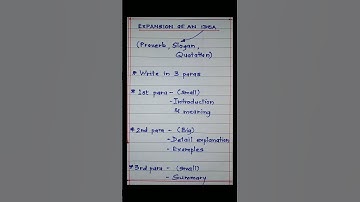 EXPANSION OF AN IDEA
(Proverb, Slogan,
Quotation)
* Write in 3 paras
* 1st para - (small)
- Introduction
& meaning
* 2nd para - (Big)
- Detail explanation
- Examples
* 3rd para - (small)
- Summary